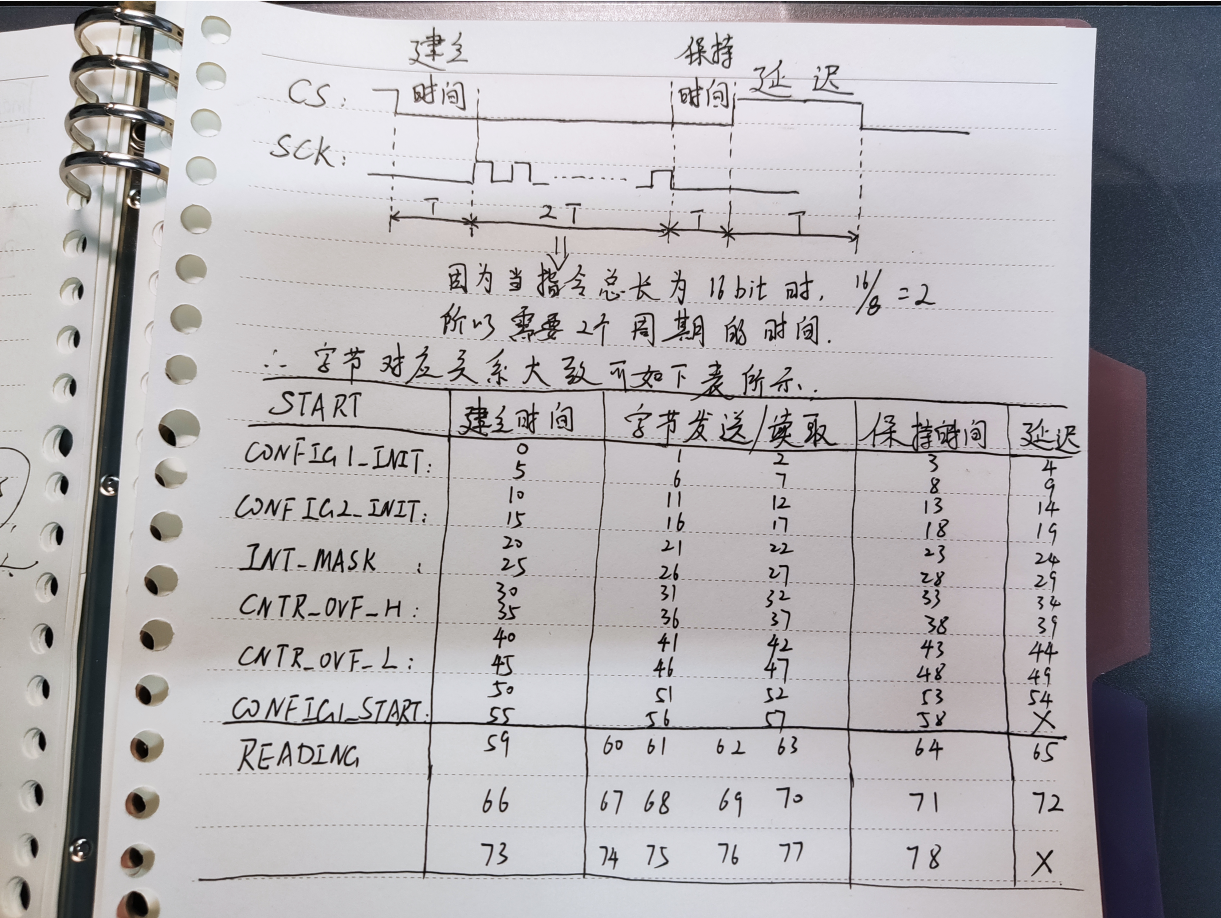 建立 保持
CS: 时间 时间 延迟
SCK:
T 2T T T
因为当指令总长为16bit时, 16/8=2
所以需要2个周期的时间.
∴字节对应关系大致可如下表所示:
START 建立时间 字节发送/读取 保持时间 延迟
0 1 2 3 4
CONFIG1_INIT: 5 6 7 8 9
10 11 12 13 14
CONFIG2_INIT: 15 16 17 18 19
20 21 22 23 24
INT_MASK : 25 26 27 28 29
30 31 32 33 34
CNTR_OVF_H: 35 36 37 38 39
40 41 42 43 44
CNTR_OVF_L: 45 46 47 48 49
50 51 52 53 54
CONFIG1_START: 55 56 57 58 X
READING 59 60 61 62 63 64 65
66 67 68 69 70 71 72
73 74 75 76 77 78 X